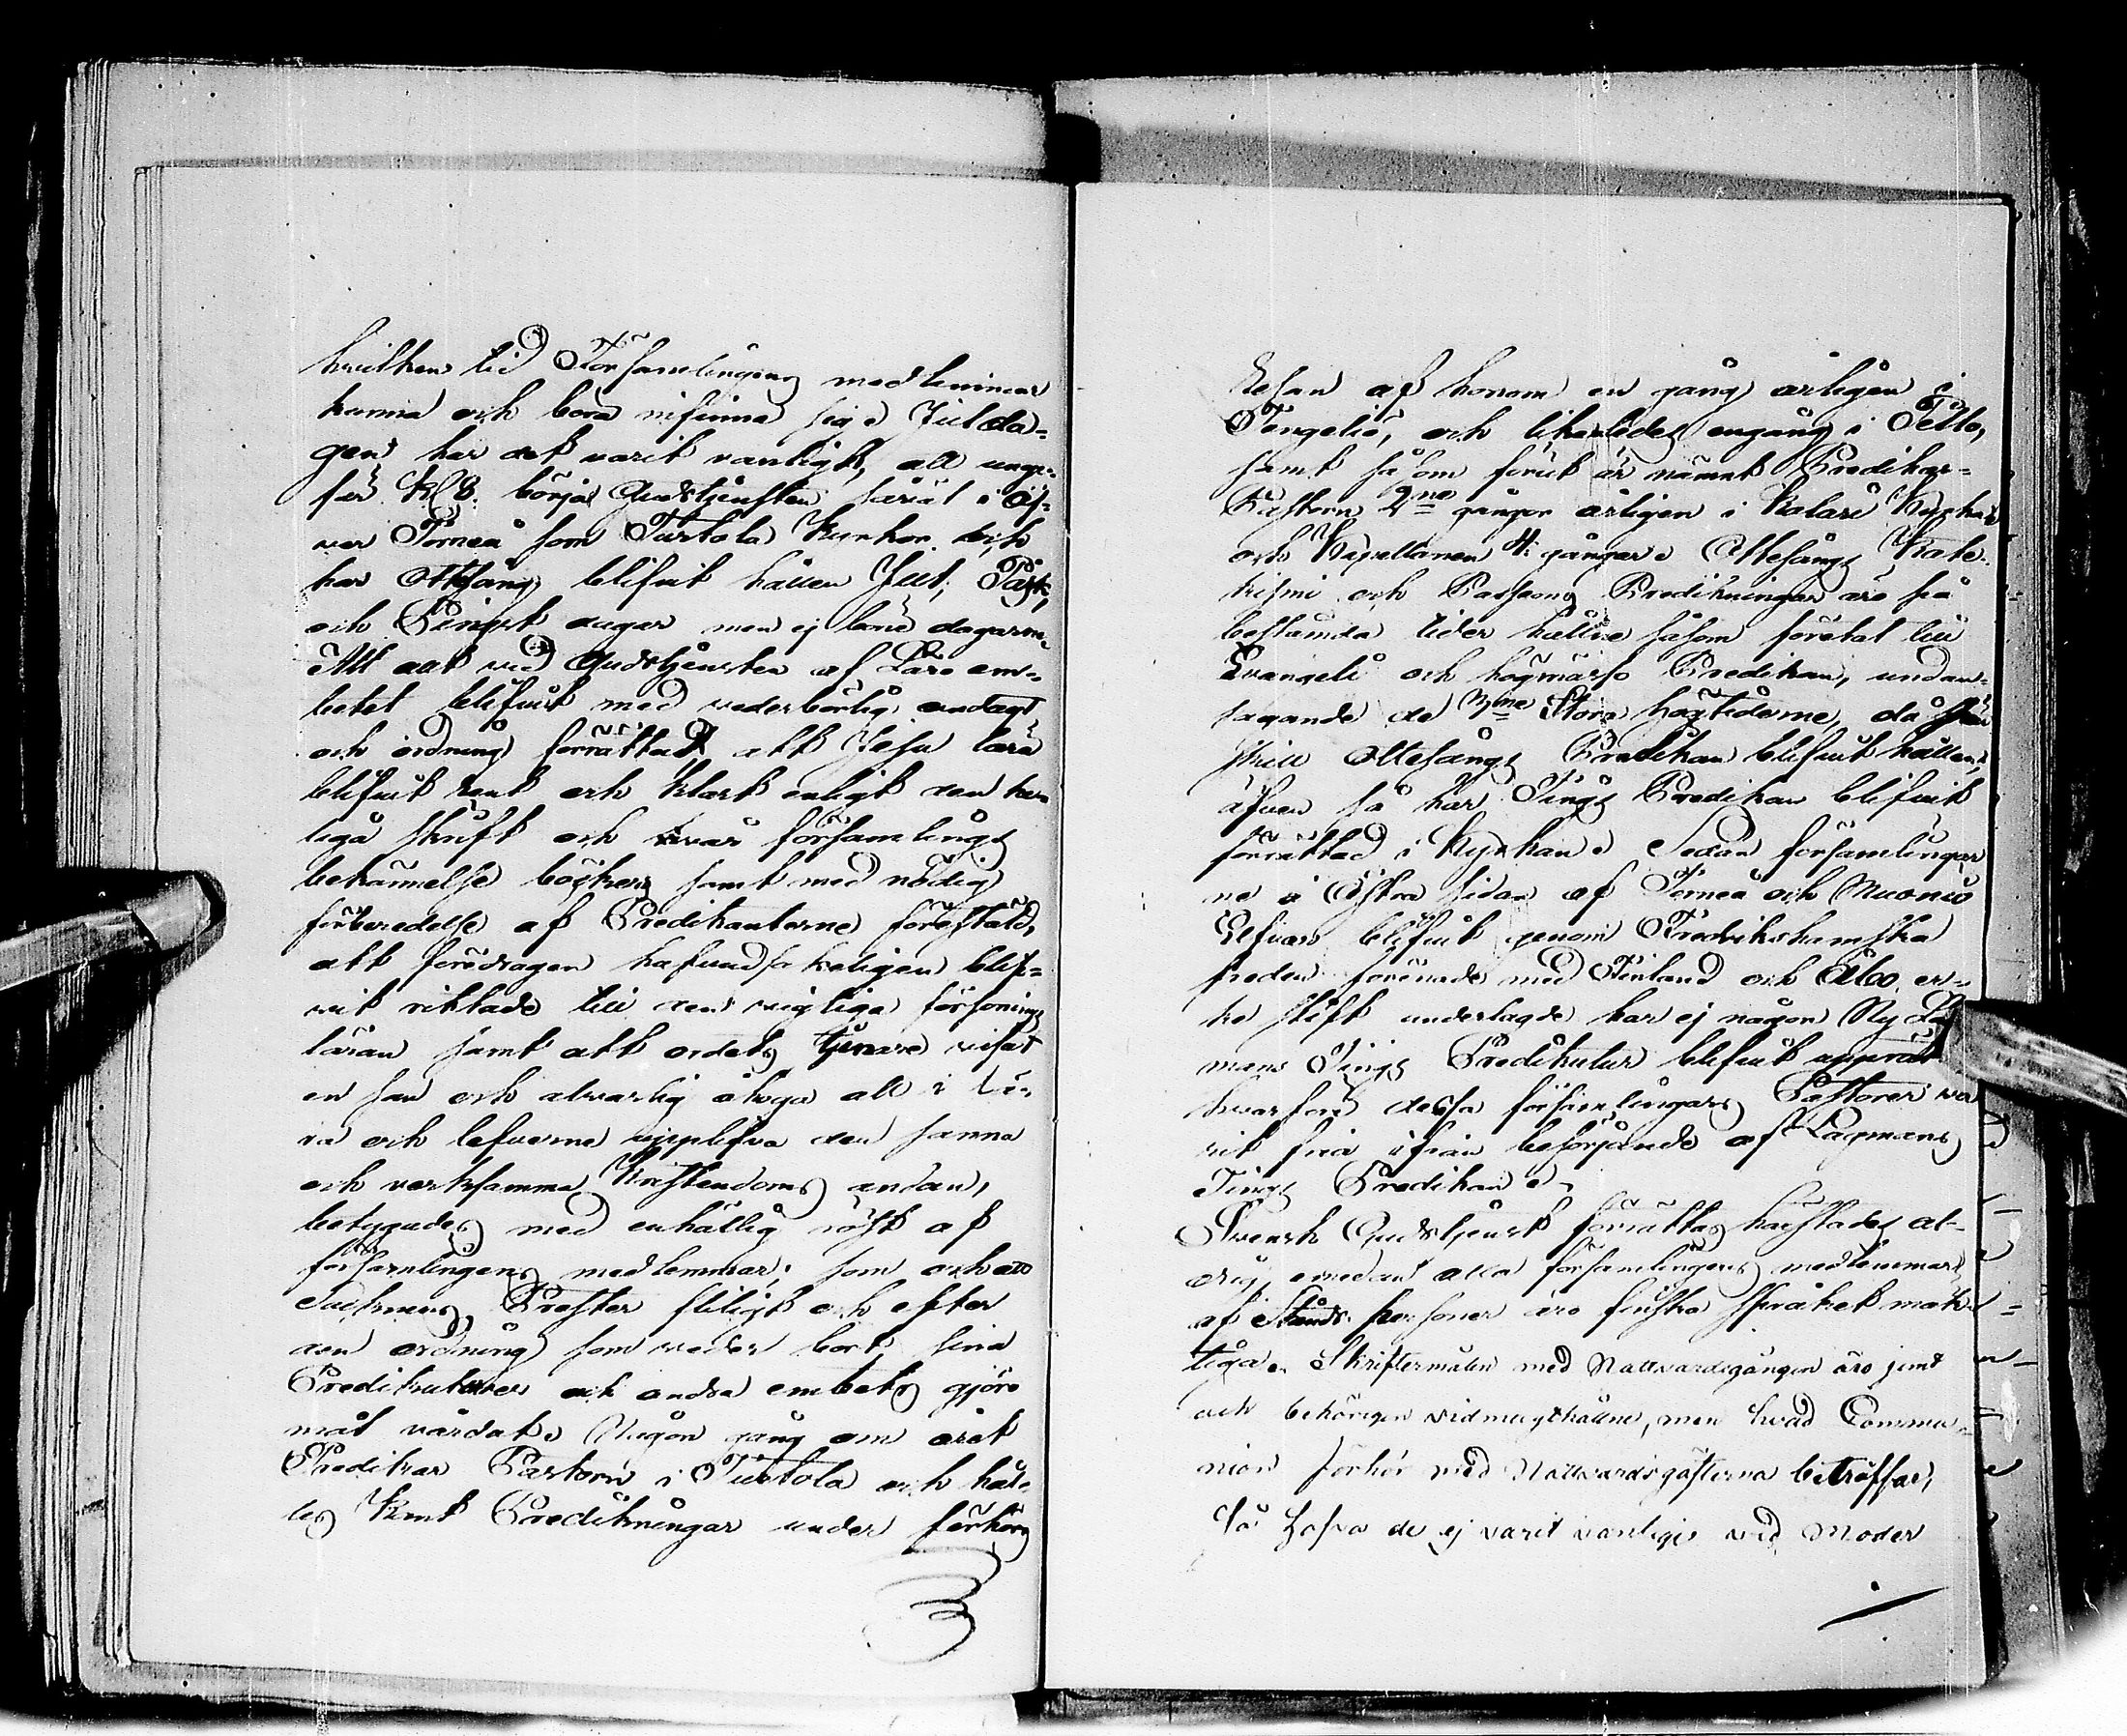 hvilken tid Församlingens medlemmar
kunna och bora infinna sig. Juleda-
gen har det varit vanligt, att unge-
fär Kl 8. börjas Gudstjensten såväl i Öf-
ver Torneå som Turtola Kyrkor. och
har Ottesång blifvit hållen Jul, Påsk,
och Pingst dagar men ej böne dagarne.
Att allt vid Gudstjensten af Läro em-
betet blifvit med vederbörlig andagt
och ordning förrättad, att Jesu lära
blifvit rent och klart enligt den he-
liga skrift och vår församlings
bekännelse böcker samt med nödig
förberedelse af Predikanterne föreställd,
att föredragen hafvudsakeligen blif-
vit riktade till den vigtiga försonings
läran samt att ordets tjenare visat
en san och alvarlig åhoga att i lä-
ra och lefverne upplifva den sanna
och verksamma Kristendoms andan,
betygades med enhällig röst af
församlingens medlemmar; som och att
Prester flitigt och efter
den ordning som veder bort sina
Predikoturer och andra embets gjöro
mål vårdat. Någon gång om året
Predikar Pastorn i Turtola och hål-
les samt Predikningar under förhörs
Resan af honom en gång årligen i
Tengeliö, och likaledes engång i Pello,
samt så som förut är nämnt Predikar-
Pastorn 2ne gånger årligen i Kolari Kyrka
och Kapellanen 4 gånger. Ottesångs Kate-
kismi och Passions Predikningar äro på
bestämda tider hållne såsom företal till
Evangelii och högmässo Predikan, undan-
tagande de 3ne Stora högtiderne, då sär
skill Ottesångs Predikan blifvit hållen,
äfven så har Tings Predikan blifvit
förrättad i Kyrkan. Sedan församlingar
ne å Östra sidan af Torneå och Muonio
Elfvar blifvit genom Fredrikshamska
freden förenade med Finland och Åbo er-
ke stift underlagde har ej någon Ny Lag
mans Tings Predikotur blifvit upprät
hvarföre dessa församlingars Pastorer va
rit fria ifrån besörjande af Lagmans
Tings Predikan.
Svensk Gudstjenst förrättas härstädes al-
drig, emedan alla församlingens medlemmar
af Stånds personer äro finska språket mäk-
tiga. Skriftermålen med Nattvardsgången äro jemt
och behörigen vidmagthållne, men hvad Commu-
nion förhör med Nattvardsgästerna beträffar,
så hafva de ej varit vanlige vid Moder